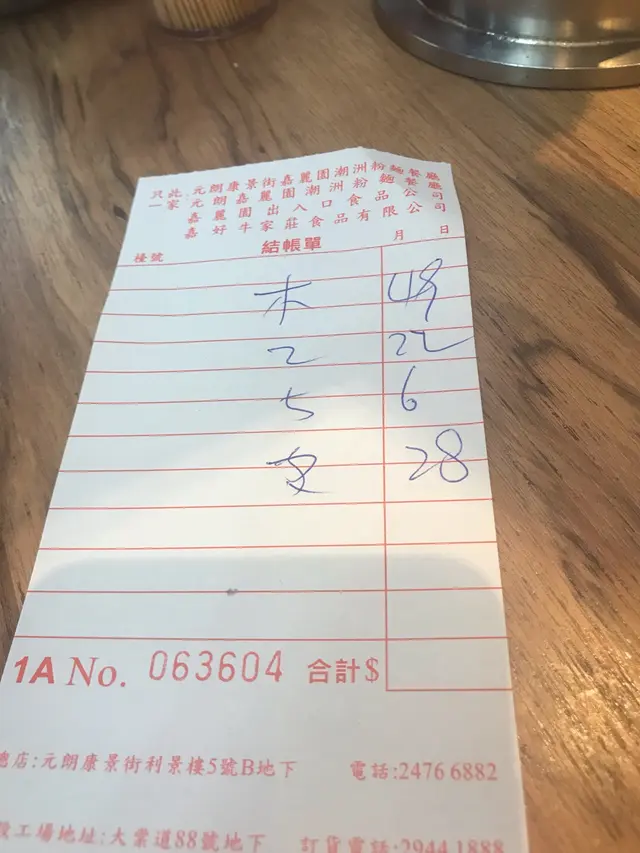 只此 元朗康景街嘉麗園潮洲粉麵餐廳
一家 元朗嘉麗園潮洲粉麵餐廳
嘉麗園出入口食品公司
嘉好牛家莊食品有限公司
結帳單
檯號 月 日
木 48
乙 22
5 6
28
1A No. 063604 合計$
店:元朗康景街利景樓5號B地下 電話:2476 6882
工場地址:大業道88號地下 訂貨電話:2944 1888